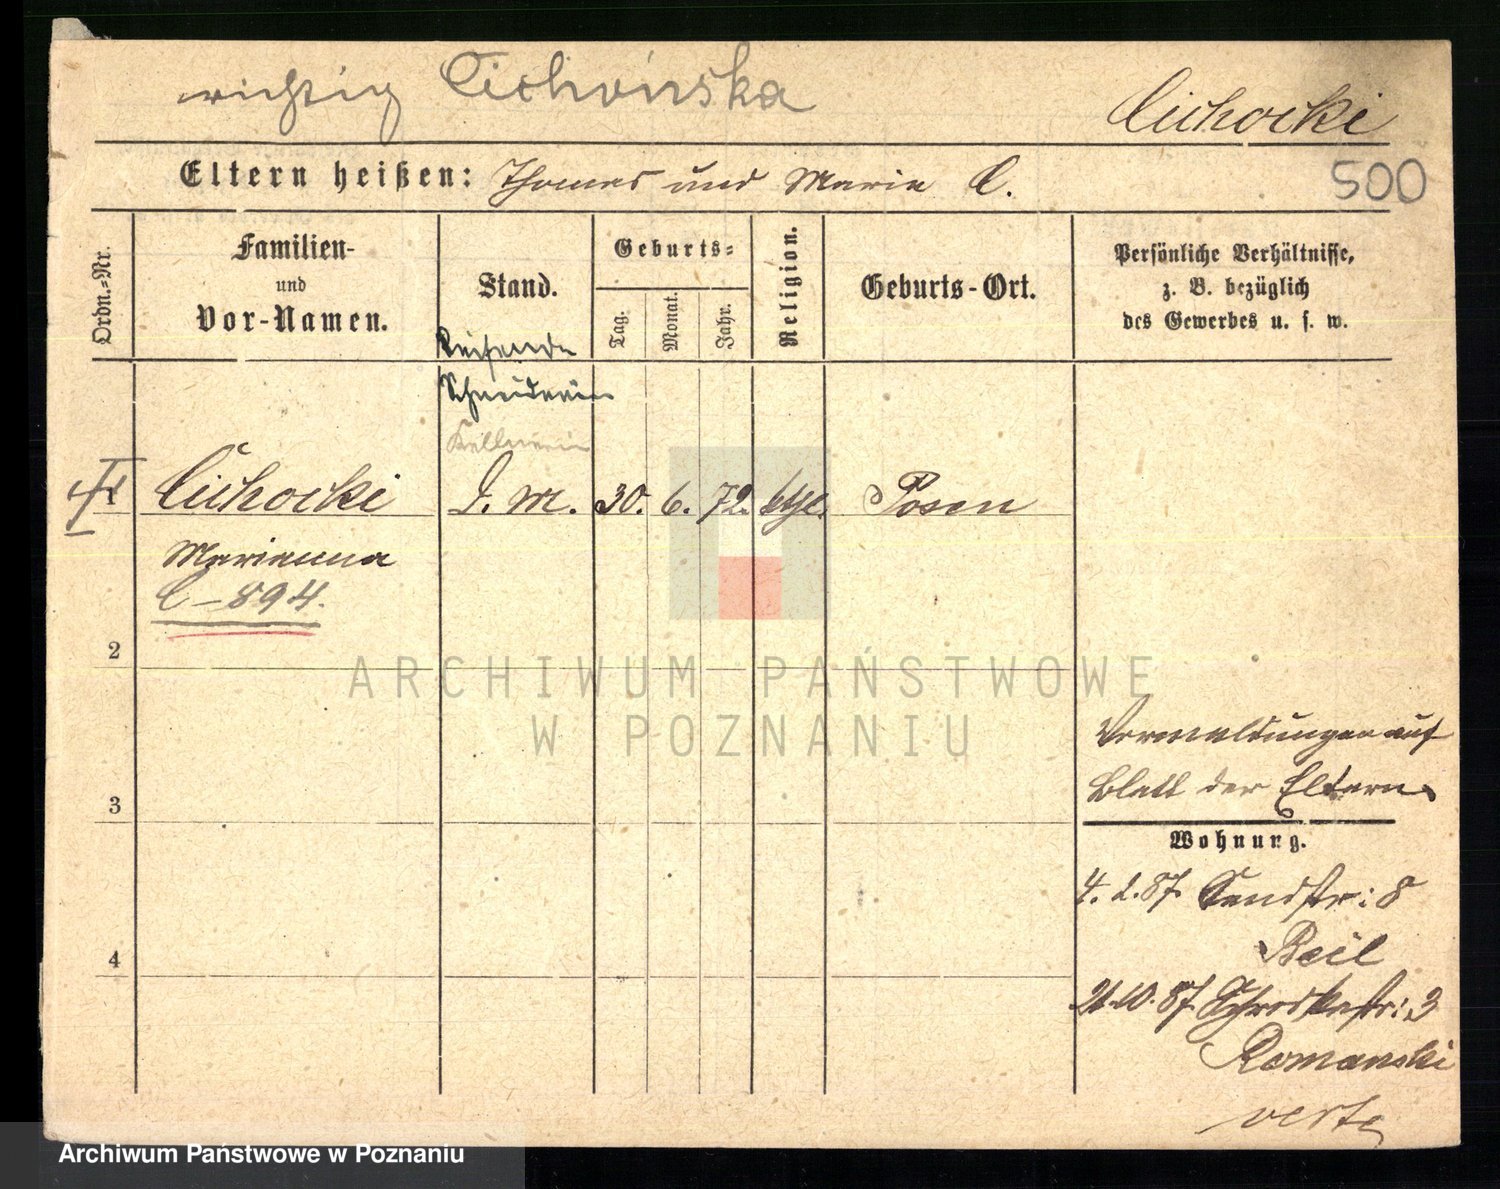 richtig Cichońska
Cichocki
500
Eltern heißen: Thomas und Marie C.
Ordn.-Nr.
Familien-
und
Vor-Namen.
Stand.
Geburts-
Tag.
Monat.
Jahr.
Religion.
Geburts-Ort.
Persönliche Verhältnisse,
z. B. bezüglich
des Gewerbes u. s. w.
Reisende
Schneiderin
Kellnerin
1 Cichocki D. M. 30. 6. 72. kth. Posen
Marianna
C-894.
2
3
4
Vermeldungen auf
Blatt der Eltern
Wohnung.
4. 2. 87. Sandstr: 8
Beil
21. 10. 87. Schrodkastr: 3
Romanski
verte
ARCHIWUM PAŃSTWOWE
W POZNANIU
Archiwum Państwowe w Poznaniu